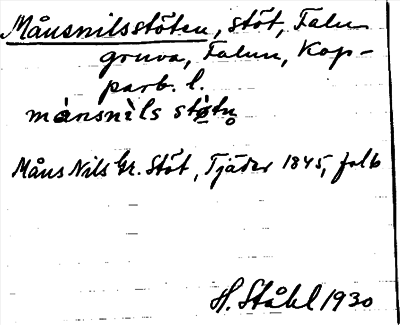 Månsnilsstöten, stöt, Falu
gruva, Falun, Kop-
parb. l.
månsnìls stø̀tn̥
Måns Nils Gr. Stöt, Tjäder 1845, fol 6
H. Ståhl 1930